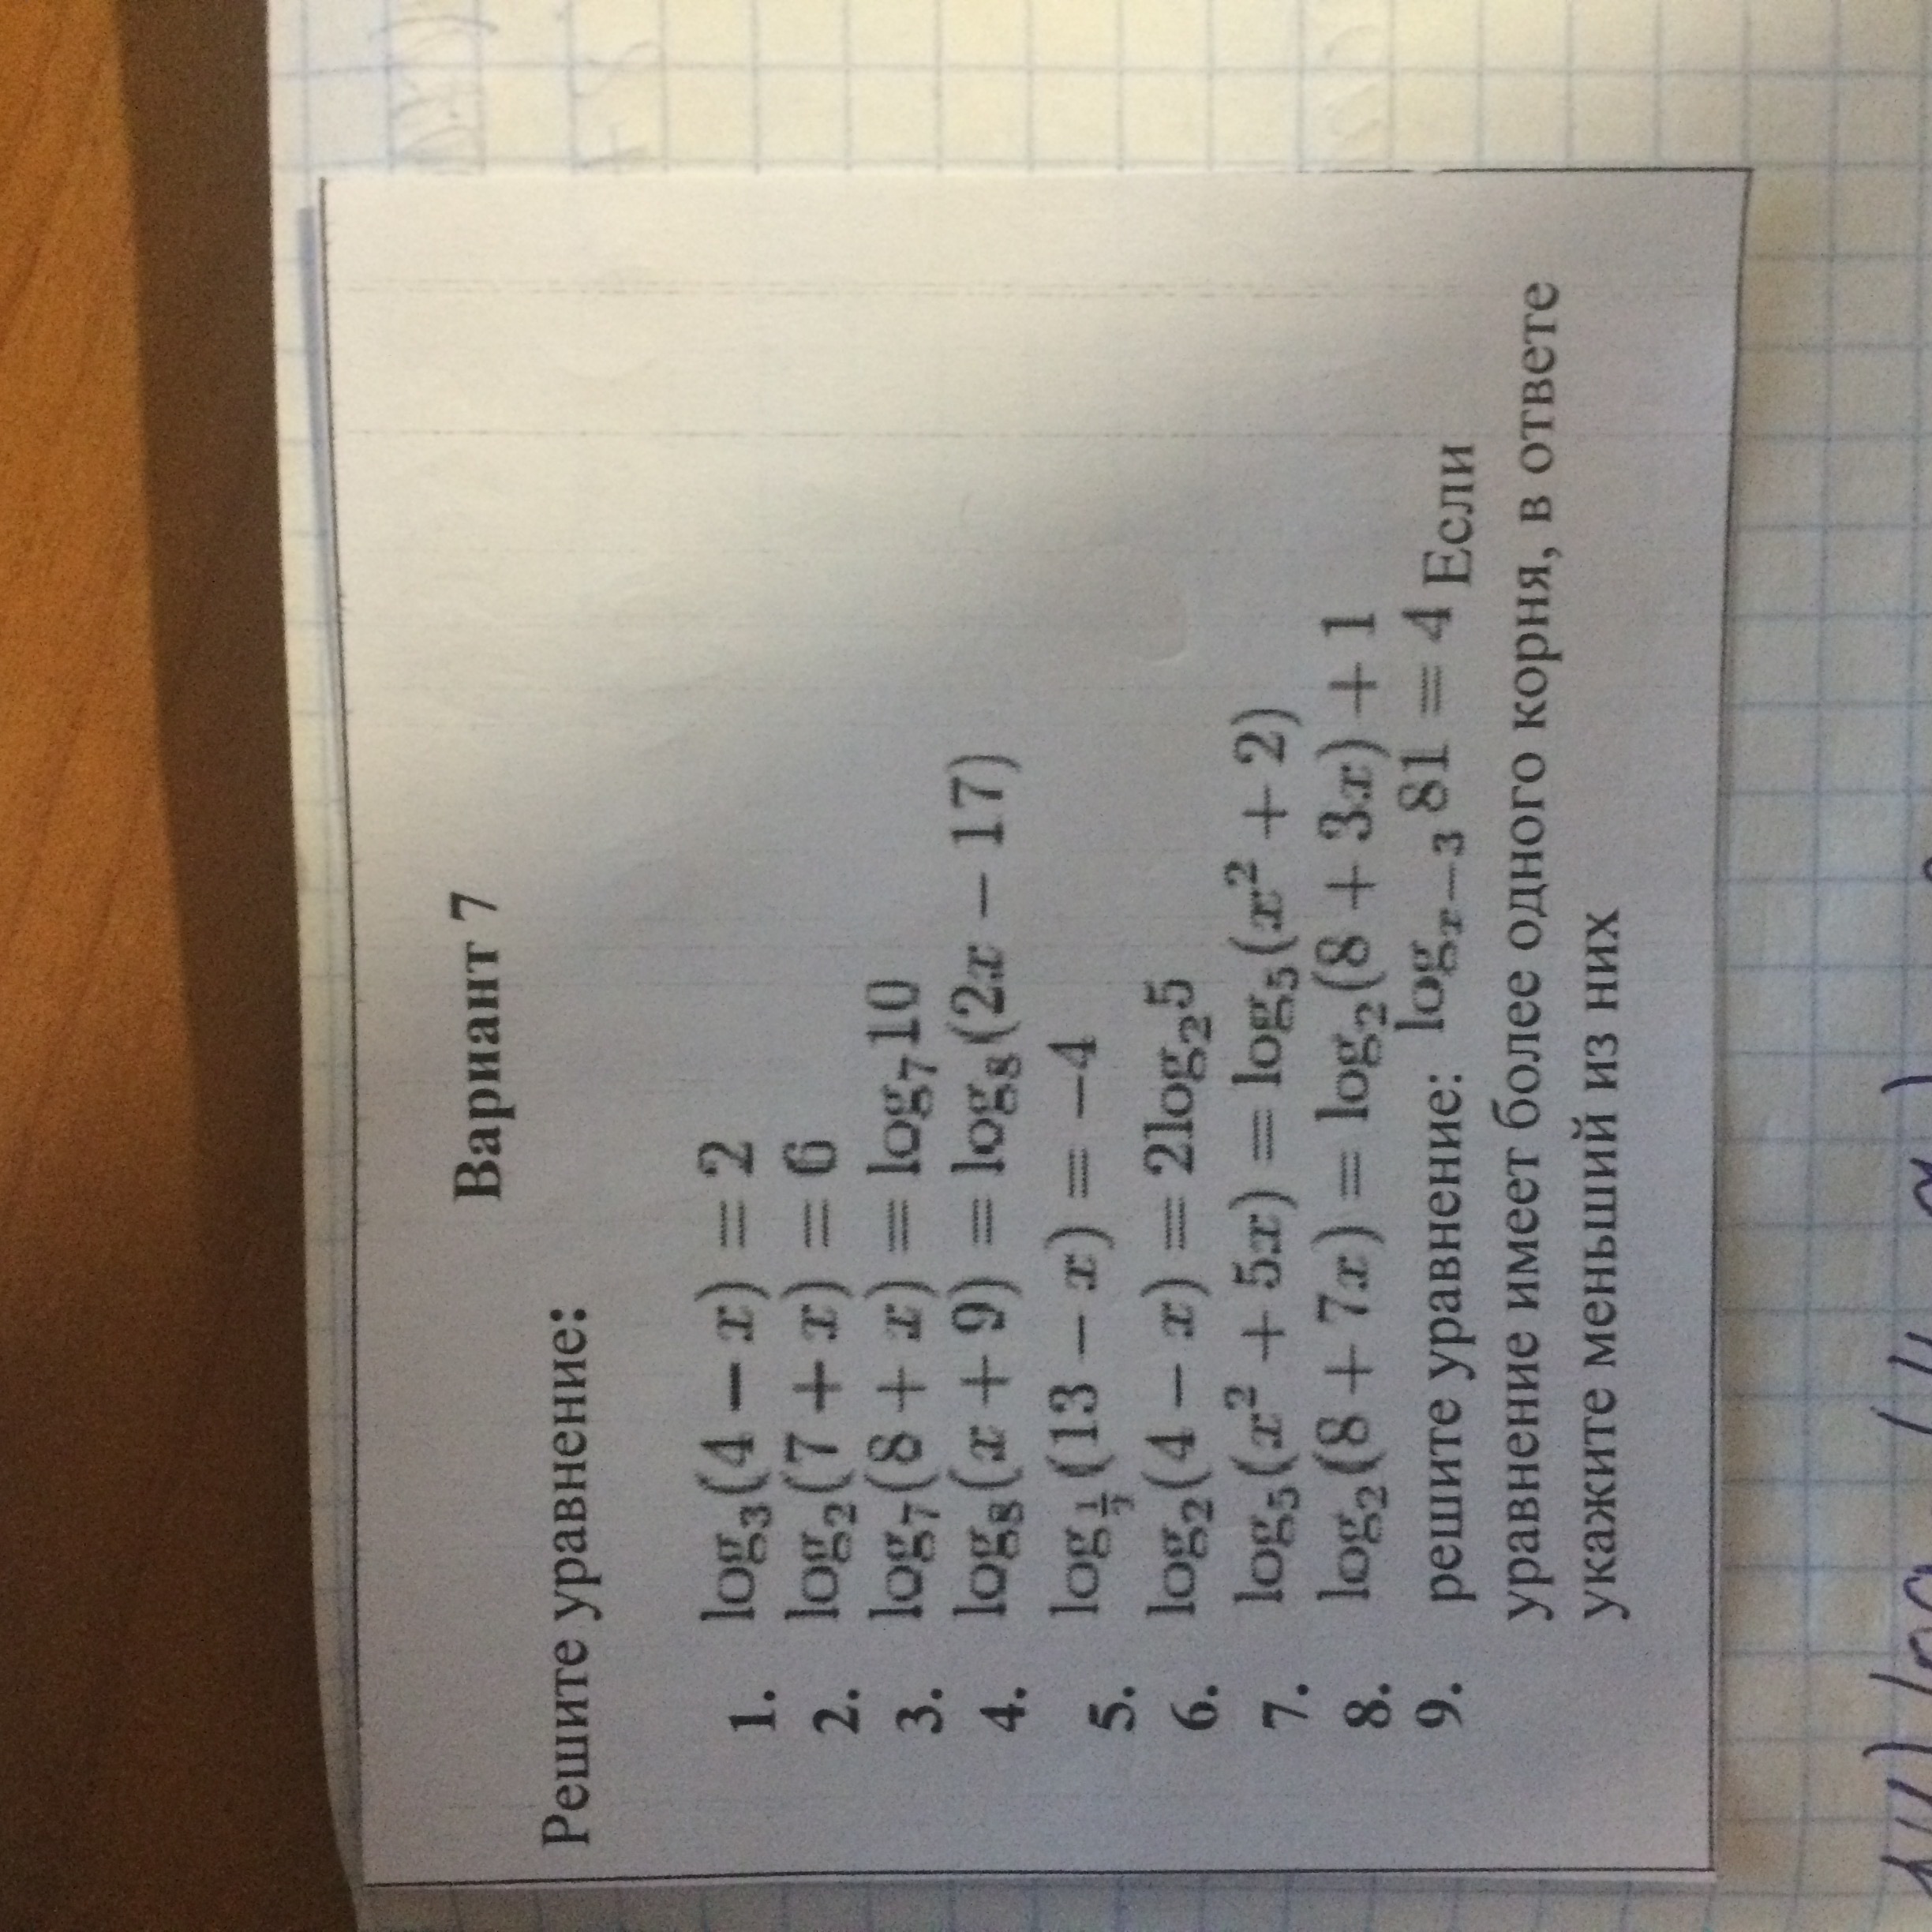 Вариант 7
Решите уравнение:
1. log₃(4 − x) = 2
2. log₂(7 + x) = 6
3. log₇(8 + x) = log₇10
4. log₈(x + 9) = log₈(2x − 17)
5. (13 − x) = −4
6. log₂(4 − x) = 2log₂5
7. log₅(x² + 5x) = log₅(x² + 2)
8. log₂(8 + 7x) = log₂(8 + 3x) + 1
9. решите уравнение: logₓ₋₃81 = 4 Если
уравнение имеет более одного корня, в ответе
укажите меньший из них